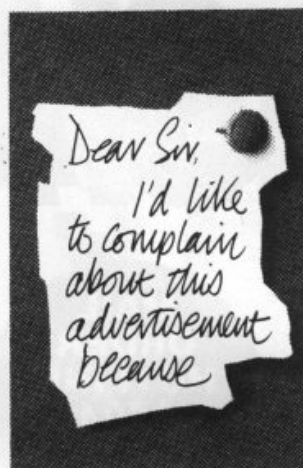 Dear Sir,
I'd like
to complain
about this
advertisement
because